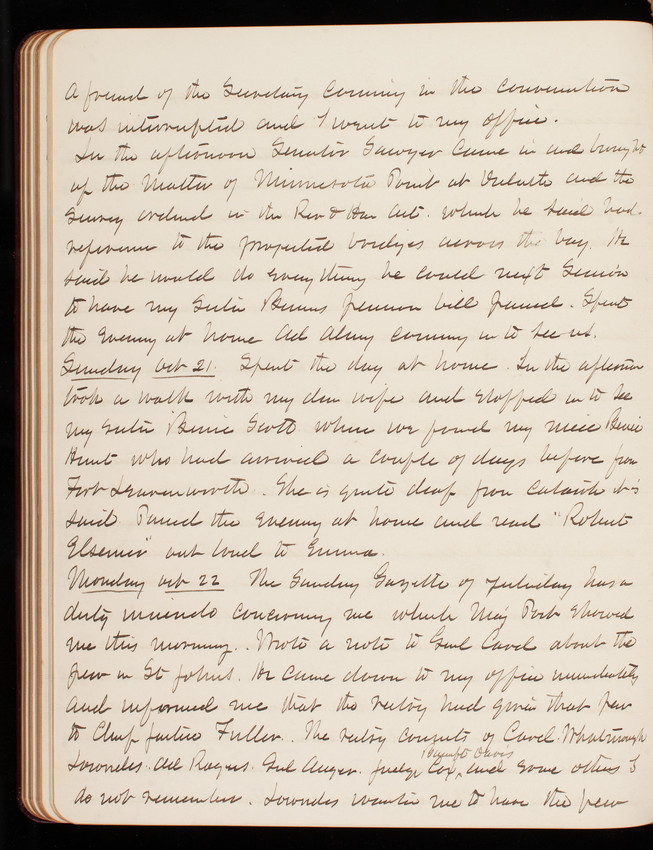 A friend of the Secretary coming in the conversation
was interrupted and I went to my office.
In the afternoon Senator Sawyer came in and brought
up the matter of Minnesota Point at Duluth and the
Survey ordered in the Riv & Har Act. which he said had
reference to the projected bridges across the bay. He
said he would do everything he could next Session
to have my Sister Bernies pension bill passed. Spent
the evening at home Col coming in to see us.
Sunday Oct 21. Spent the day at home. In the afternoon
took a walk with my dear wife and stopped in to see
my Sister Bernie Scott where we found my niece Bernie
Hunt who had arrived a couple of days before from
Fort Leavenworth. She is quite deaf from Catarrh it is
said Passed the evening at home and read "Robert
Elsemir" out loud to Emma.
Monday Oct 22 The Sunday Gazette of yesterday has a
dirty inuendo concerning me which Maj Post showed
me this morning. Wrote a note to Genl Card about the
pew in St Johns. He came down to my office immediately
and informed me that the vestry had given that pew
to Chief Justice Fuller. The vestry consists of Card Whatmough
Lowndes. Adl Rogers. Genl Auger. Judge Cox, Bancroft Davis and some others I
do not remember. Lowndes wanted me to have the pew